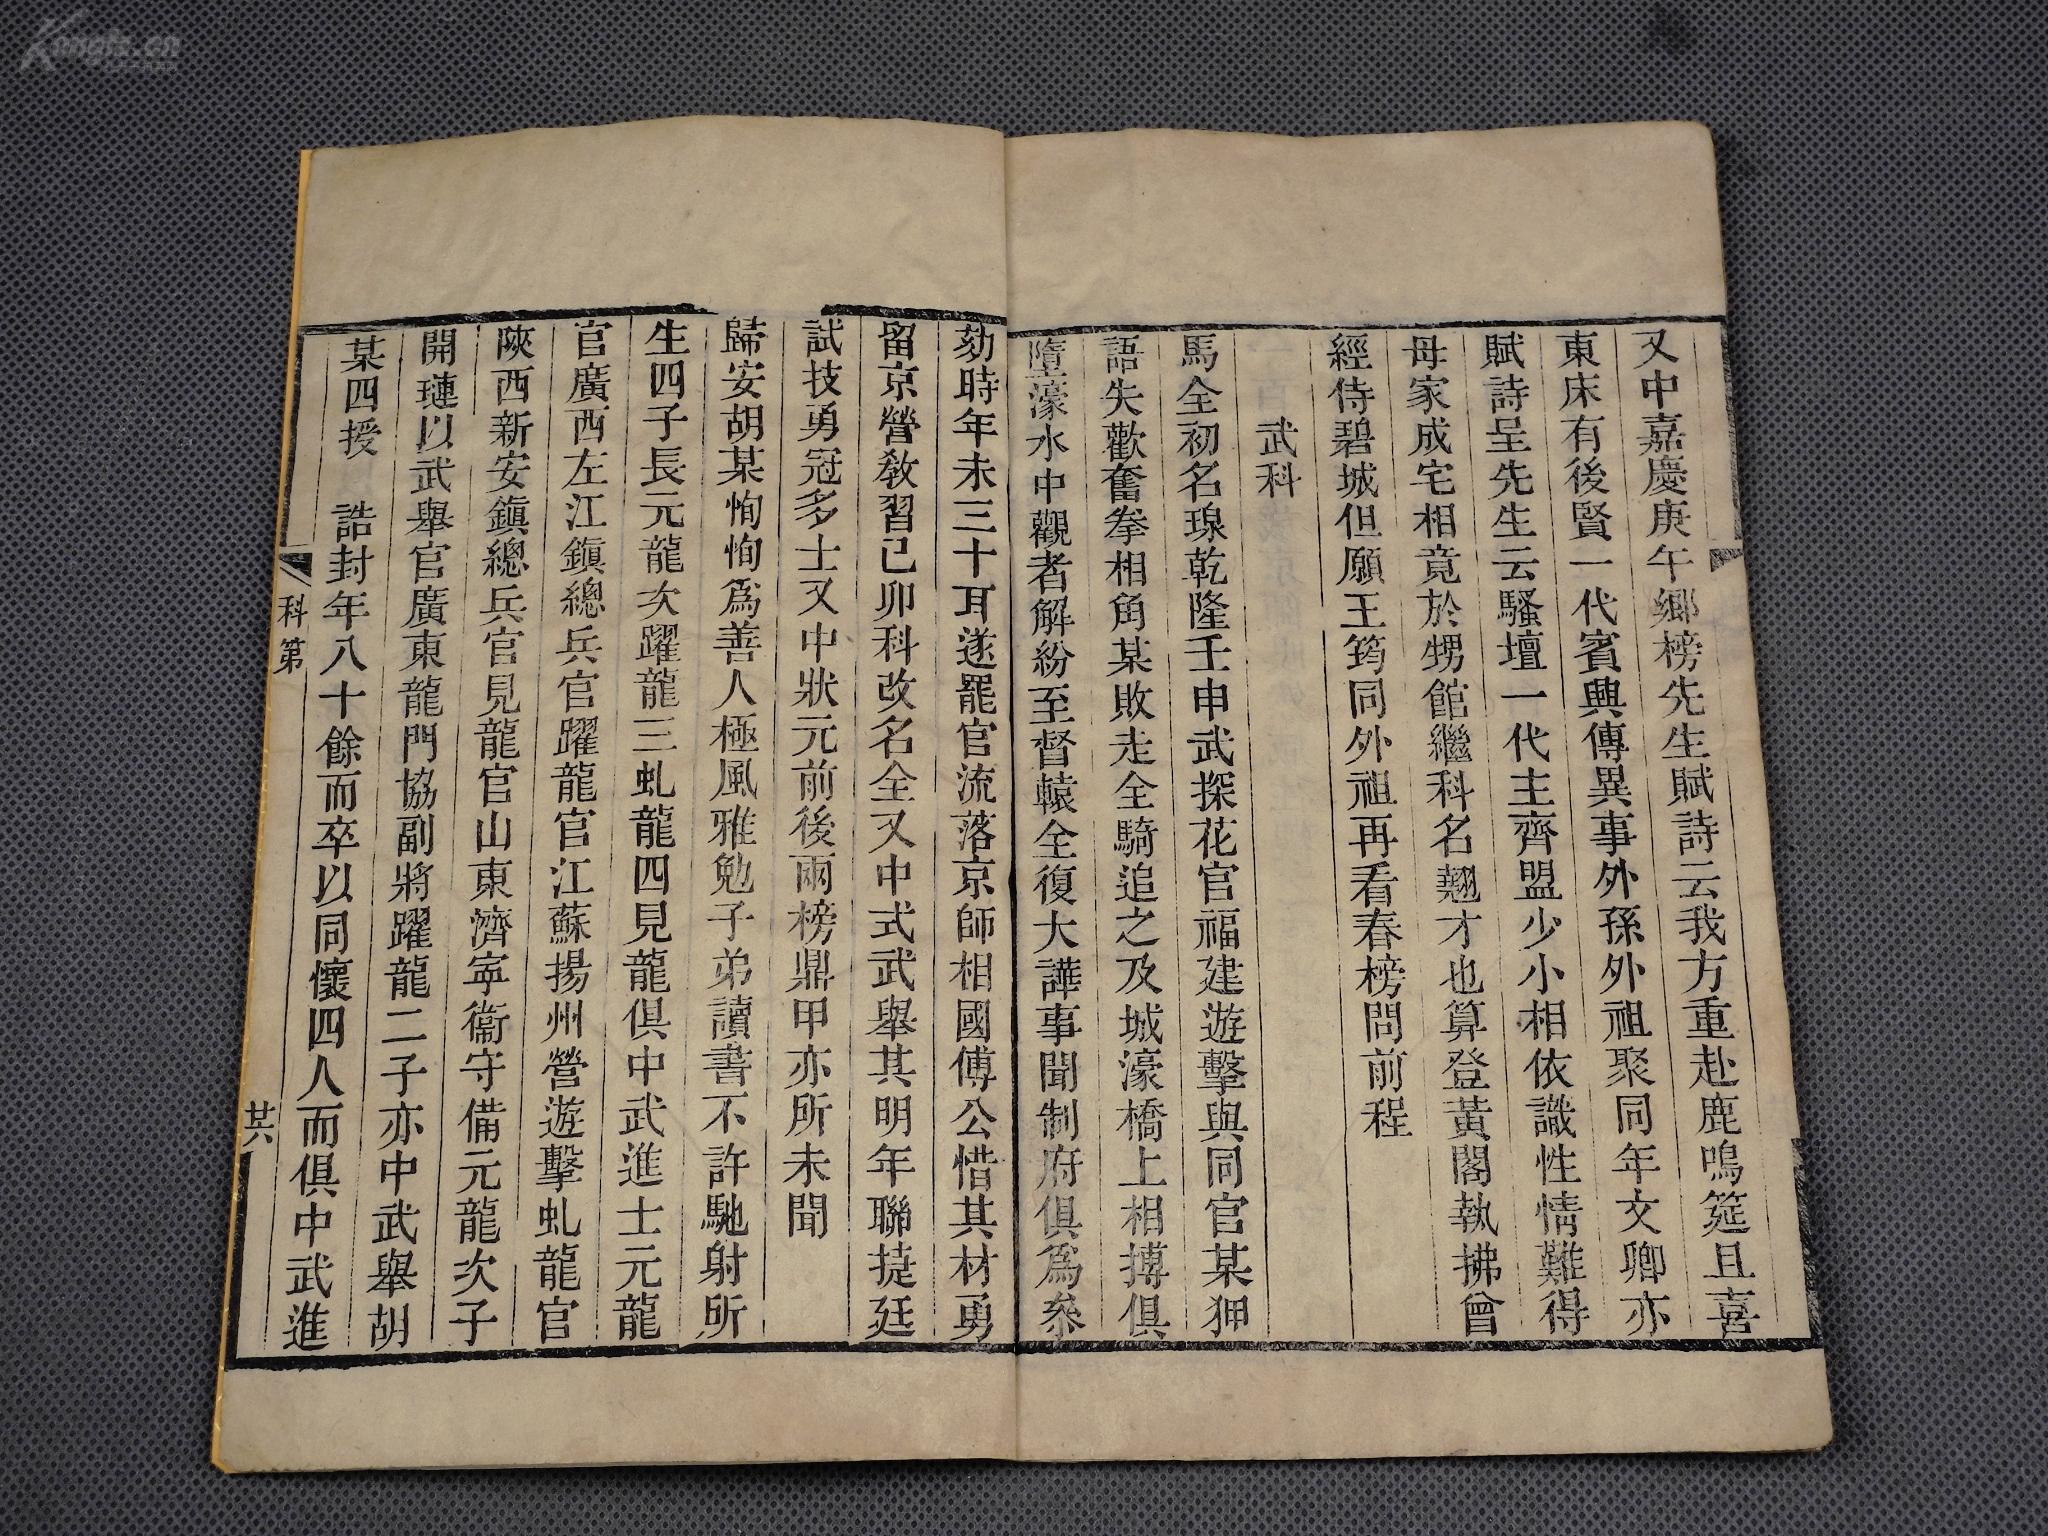 又中嘉慶庚午鄉榜先生賦詩云我方重赴鹿鳴筵且喜
東床有後賢一代賓興傳異事外孫外祖聚同年文卿亦
賦詩呈先生云騷壇一代主齊盟少小相依識性情難得
母家成宅相竟於甥館繼科名翹才也算登黃閣執拂曾
經侍碧城但願王筠同外祖再看春榜問前程
武科
馬全初名瑔乾隆壬申武探花官福建遊擊與同官某狎
語失歡奮拳相角某敗走全騎追之及城濠橋上相搏俱
墮濠水中觀者解紛至督轅全復大譁事聞制府俱為叅
劾時年未三十耳遂罷官流落京師相國傅公惜其材勇
留京營教習己卯科改名全又中式武舉其明年聯捷廷
試技勇冠多士又中狀元前後兩榜鼎甲亦所未聞
歸安胡某恂恂為善人極風雅勉子弟讀書不許馳射所
生四子長元龍次躍龍三虬龍四見龍俱中武進士元龍
官廣西左江鎮總兵官躍龍官江蘇揚州營遊擊虬龍官
陝西新安鎮總兵官見龍官山東濟寧衞守備元龍次子
開璉以武舉官廣東龍門協副將躍龍二子亦中武舉胡
某四授 誥封年八十餘而卒以同懷四人而俱中武進
科第
廿六
Kongfz.cn